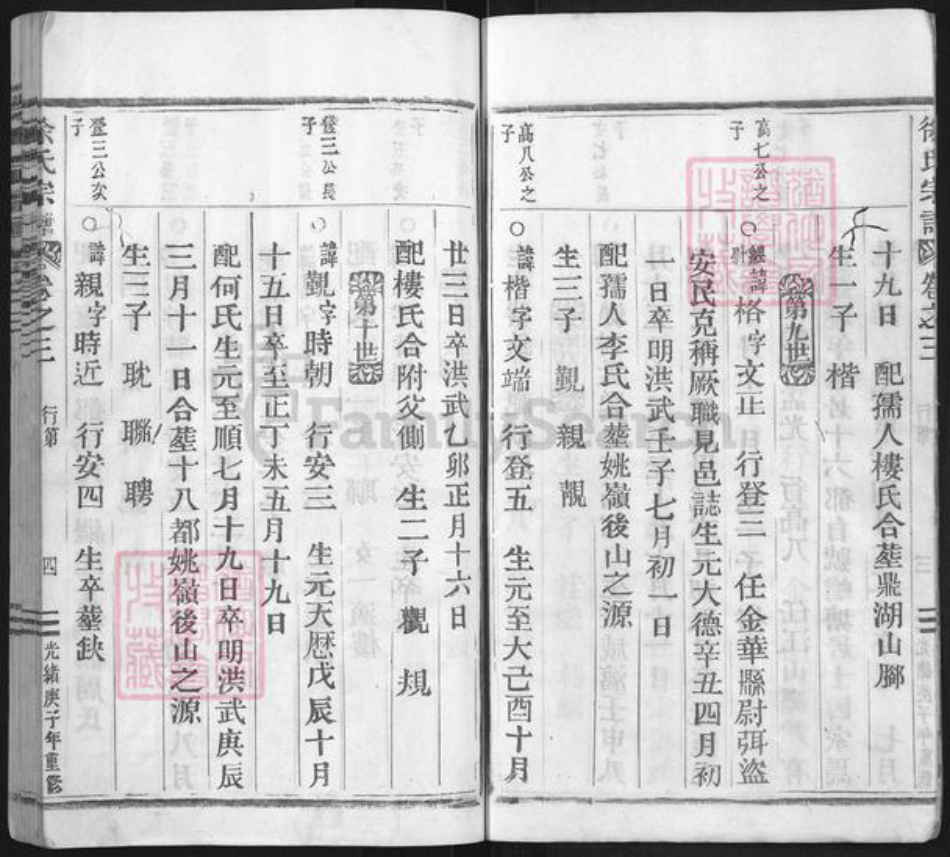 徐氏宗譜 卷之三
十九日 配孺人樓氏合塟鼎湖山腳
生一子 楷
第九世
高七公之子
諱格字文正 行登三 任金華縣尉弭盜
安民克稱厥職見邑誌生元大德辛丑四月初
一日卒明洪武壬子七月初一日
配孺人李氏合塟姚嶺後山之源
生三子 覲 親 靚
高八公之子
諱楷字文端 行登五 生元至大己酉十月
廿三日卒洪武乙卯正月十六日
配樓氏合附父側 生二子 觀 規
第十世
登三公長子
諱覲字時朝 行安三 生元天曆戊辰十月
十五日卒至正丁未五月十九日
配何氏生元至順七月十九日卒明洪武庚辰
三月十一日合塟十八都姚嶺後山之源
生三子 耽 聯 聘
登三公次子
諱親字時近 行安四 生卒塟缺
徐氏宗譜 卷之三 行第 四 光緒庚子年重修
FamilySearch